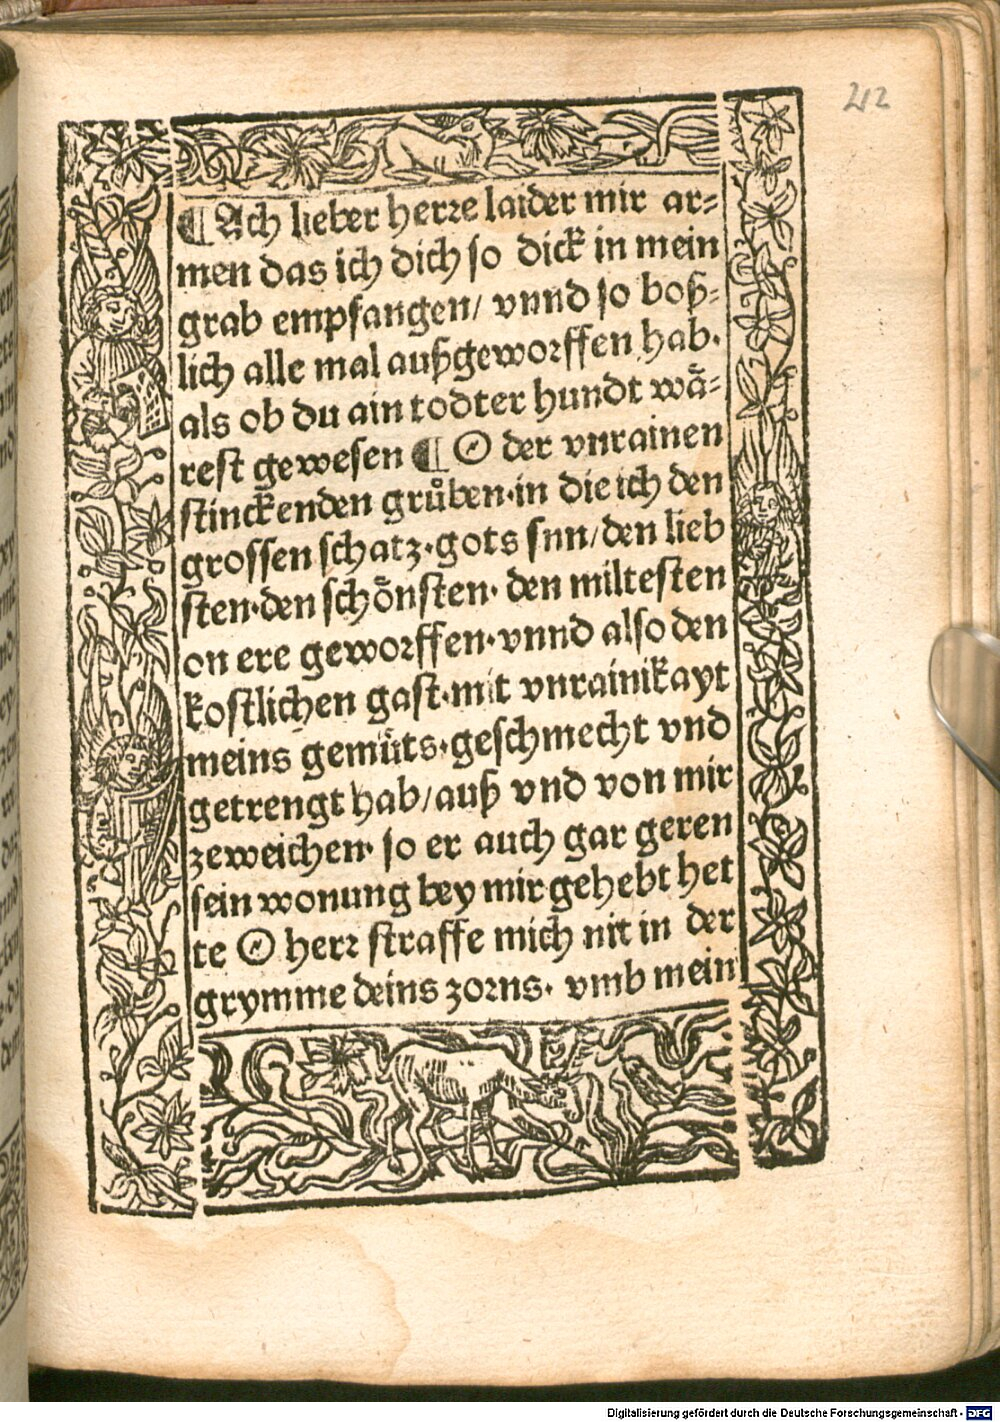 212
¶Ach lieber herꝛe laider mir ar⸗
men das ich dich so dick in mein
grab empfangen/ vnnd so boß⸗
lich alle mal außgewoꝛffen hab·
als ob du ain todter hundt waͤ⸗
rest gewesen ¶ O der vnrainen
stinckenden gruͤben·in die ich den
grossen schatz·gots snn/den lieb
sten·den schoͤnsten· den miltesten
on ere gewoꝛffen·vnnd also den
kostlichen gast·mit vnrainikayt
meins gemuͤts·geschmecht vnd
getrengt hab/auß vnd von mir
zeweichen· so er auch gar geren
sein wonung bey mir gehebt het
te O herꝛ straffe mich nit in der
grymme deins zoꝛns· vmb mein
Digitalisierung gefördert durch die Deutsche Forschungsgemeinschaft - DFG